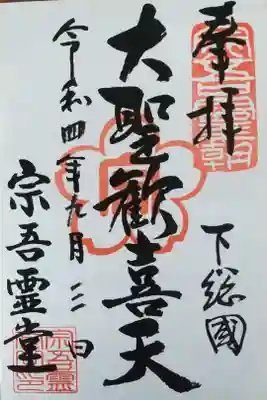 奉拝
下総國
大聖歓喜天
令和四年九月三日
宗吾霊堂